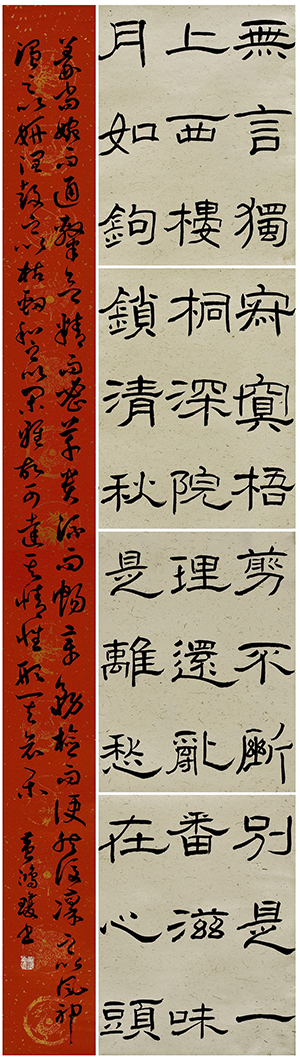 無言獨
上西樓
月如鉤
寂寞梧
桐深院
鎖清秋
剪不斷
理還亂
是離愁
別是一
番滋味
在心頭
篆尚婉而通隸欲精而密草貴流而暢章務檢而便然後凜之以風神
溫之以妍潤鼓之以枯勁和之以閑雅故可達其情性形其哀樂 書